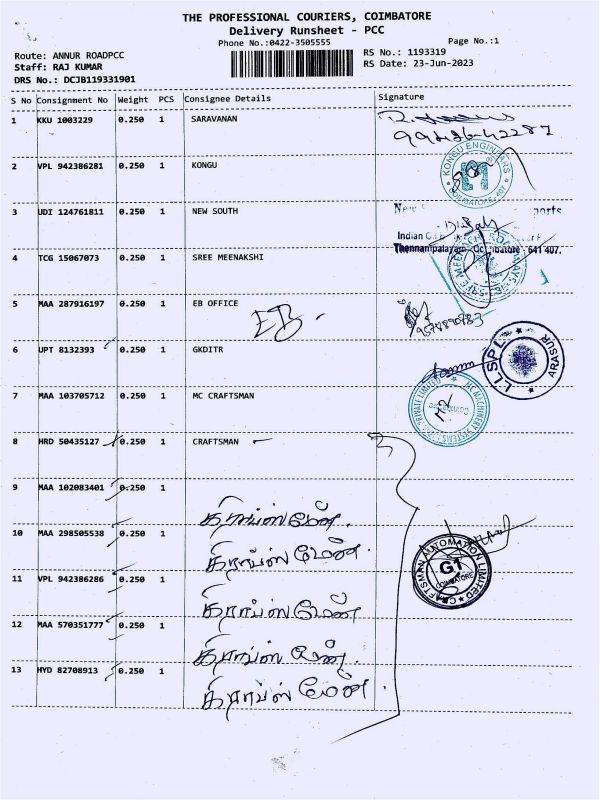 THE PROFESSIONAL COURIERS, COIMBATORE
Delivery Runsheet - PCC
Phone No.:0422-3505555
Page No.:1
Route: ANNUR ROADPCC
RS No.: 1193319
Staff: RAJ KUMAR
RS Date: 23-Jun-2023
DRS No.: DCJB119331901
S No Consignment No Weight PCS Consignee Details Signature
1 KKU 1003229 0.250 1 SARAVANAN
2 VPL 942386281 0.250 1 KONGU
KONGU ENGINEERS
3 UDI 124761811 0.250 1 NEW SOUTH
Indian
Thennampalayam, Coimbatore - 641 407.
4 TCG 15067073 0.250 1 SREE MEENAKSHI
5 MAA 287916197 0.250 1 EB OFFICE
EB
6 UPT 8132393 0.250 1 GKDITR
LLSPL ARASUR
7 MAA 103705712 0.250 1 MC CRAFTSMAN
MC MACHINERY SYSTEMS PRIVATE LIMITED
8 HRD 50435127 0.250 1 CRAFTSMAN
9 MAA 102083401 0.250 1
கிராப்ஸ்மேன்.
10 MAA 298505538 0.250 1
கிராப்ஸ்மேன்.
CRAFTSMAN AUTOMATION LIMITED
G1
COIMBATORE
11 VPL 942386286 0.250 1
கிராப்ஸ்மேன்
12 MAA 570351777 0.250 1
கிராப்ஸ்மேன்.
13 HYD 82708913 0.250 1
கிராப்ஸ்மேன்.